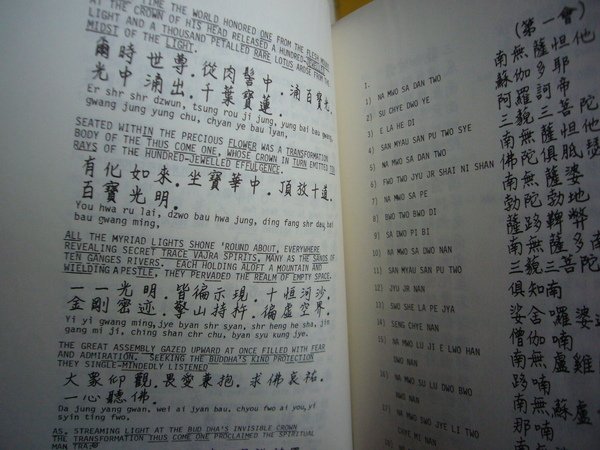 TIME THE WORLD HONORED ONE FROM THE FLESH MOUND
AT THE CROWN OF HIS HEAD RELEASED A HUNDRED-JEWELLED
LIGHT AND A THOUSAND PETALLED RARE LOTUS AROSE FROM THE
MIDST OF THE LIGHT.
爾時世尊.從肉髻中.涌百寶光.
光中涌出.千葉寶蓮.
Er shr shr dzwun, tsung rou ji jung, yung bai bau gwang,
gwang jung yung chu, chyan ye bau lyan,
SEATED WITHIN THE PRECIOUS FLOWER WAS A TRANSFORMATION
BODY OF THE THUS COME ONE, WHOSE CROWN IN TURN EMITTED TEN
RAYS OF THE HUNDRED-JEWELLED EFFULGENCE.
有化如來.坐寶華中.頂放十道.
百寶光明.
You hwa ru lai, dzwo bau hwa jung, ding fang shr dau, bai
bau gwang ming,
ALL THE MYRIAD LIGHTS SHONE 'ROUND ABOUT, EVERYWHERE
REVEALING SECRET TRACE VAJRA SPIRITS, MANY AS THE SANDS OF
TEN GANGES RIVERS. EACH HOLDING ALOFT A MOUNTAIN AND
WIELDING A PESTLE, THEY PERVADED THE REALM OF EMPTY SPACE.
一一光明.皆徧示現.十恒河沙.
金剛密迹.擎山持杵.徧虛空界.
Yi yi gwang ming, jye byan shr syan, shr heng he sha, jin
gang mi ji, ching shan chr chu, byan syu kung jye.
THE GREAT ASSEMBLY GAZED UPWARD AT ONCE FILLED WITH FEAR
AND ADMIRATION. SEEKING THE BUDDHA'S KIND PROTECTION
THEY SINGLE-MINDEDLY LISTENED
大眾仰觀.畏愛兼抱.求佛哀祐.
一心聽佛.
Da jung yang gwan, wei ai jyan bau, chyou fwo ai you, yi
syin ting fwo,
AS, STREAMING LIGHT AT THE BUDDHA'S INVISIBLE CROWN
THE TRANSFORMATION THUS COME ONE PROCLAIMED THE SPIRITUAL
MAN TRA:
(第一會)
I-
1) NA MWO SA DAN TWO
2) SU CHYE DWO YE
3) E LA HE DI
4) SAN MYAU SAN PU TWO SYE
5) NA MWO SA DAN TWO
6) FWO TWO JYU JR SHAI NI SHAN
7) NA MWO SA PE
8) BWO TWO BWO DI
9) SA DWO PI BI
10) NA MWO SA DWO NAN
11) SAN MYAU SAN PU TWO
12) JYU JR NAN
13) SWO SHE LA PE JYA
14) SENG CHYE NAN
15) NA MWO LU JI E LWO HAN
DWO NAN
16) NA MWO SU LU DWO BWO
NWO NAN
17) NA MWO SWO JYE LI TWO
CHYE MI NAN
南無薩怛他
蘇伽多耶
阿羅訶帝
三藐三菩陀
南無薩怛他
佛陀俱胝瑟
南無薩婆
勃陀勃地
薩跢鞞弊
南無薩多南
三藐三菩陀
俱知南
娑舍囉婆
僧伽喃
南無盧雞
跢喃
南無蘇盧
那喃